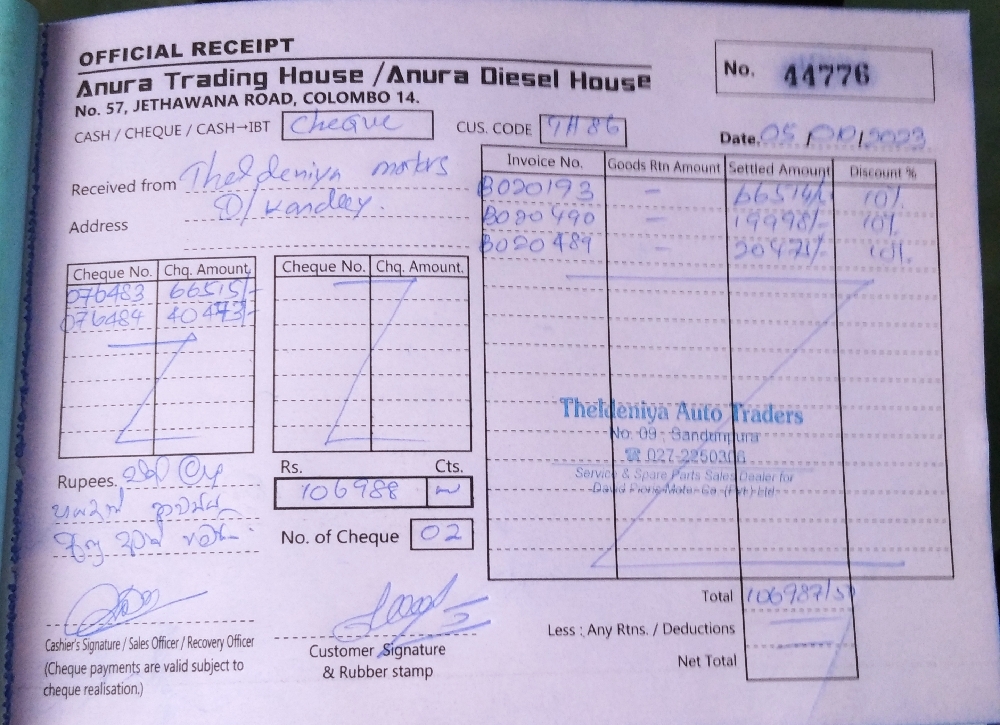 OFFICIAL RECEIPT
Anura Trading House / Anura Diesel House
No. 57, JETHAWANA ROAD, COLOMBO 14.
No. 44776
CASH / CHEQUE / CASH→IBT Cheque
CUS. CODE
Date. 05 / /2023
Received from Theldeniya motors
Address Kandy.
Cheque No. Chq. Amount
076483 66515/-
076484 40473/-
Cheque No. Chq. Amount.
Invoice No. Goods Rtn Amount Settled Amount Discount %
B020193 - 10%
B020490 - 19998/- 10%
B020489 - 10%
Theldeniya Auto Traders
No. 09, Sandunpura
☎ 027-2250306
Service & Spare Parts Sales Dealer for
Rupees.
Rs. Cts.
106988
No. of Cheque 02
Total 106987/50
Less : Any Rtns. / Deductions
Net Total
Cashier's Signature / Sales Officer / Recovery Officer
(Cheque payments are valid subject to
cheque realisation.)
Customer Signature
& Rubber stamp